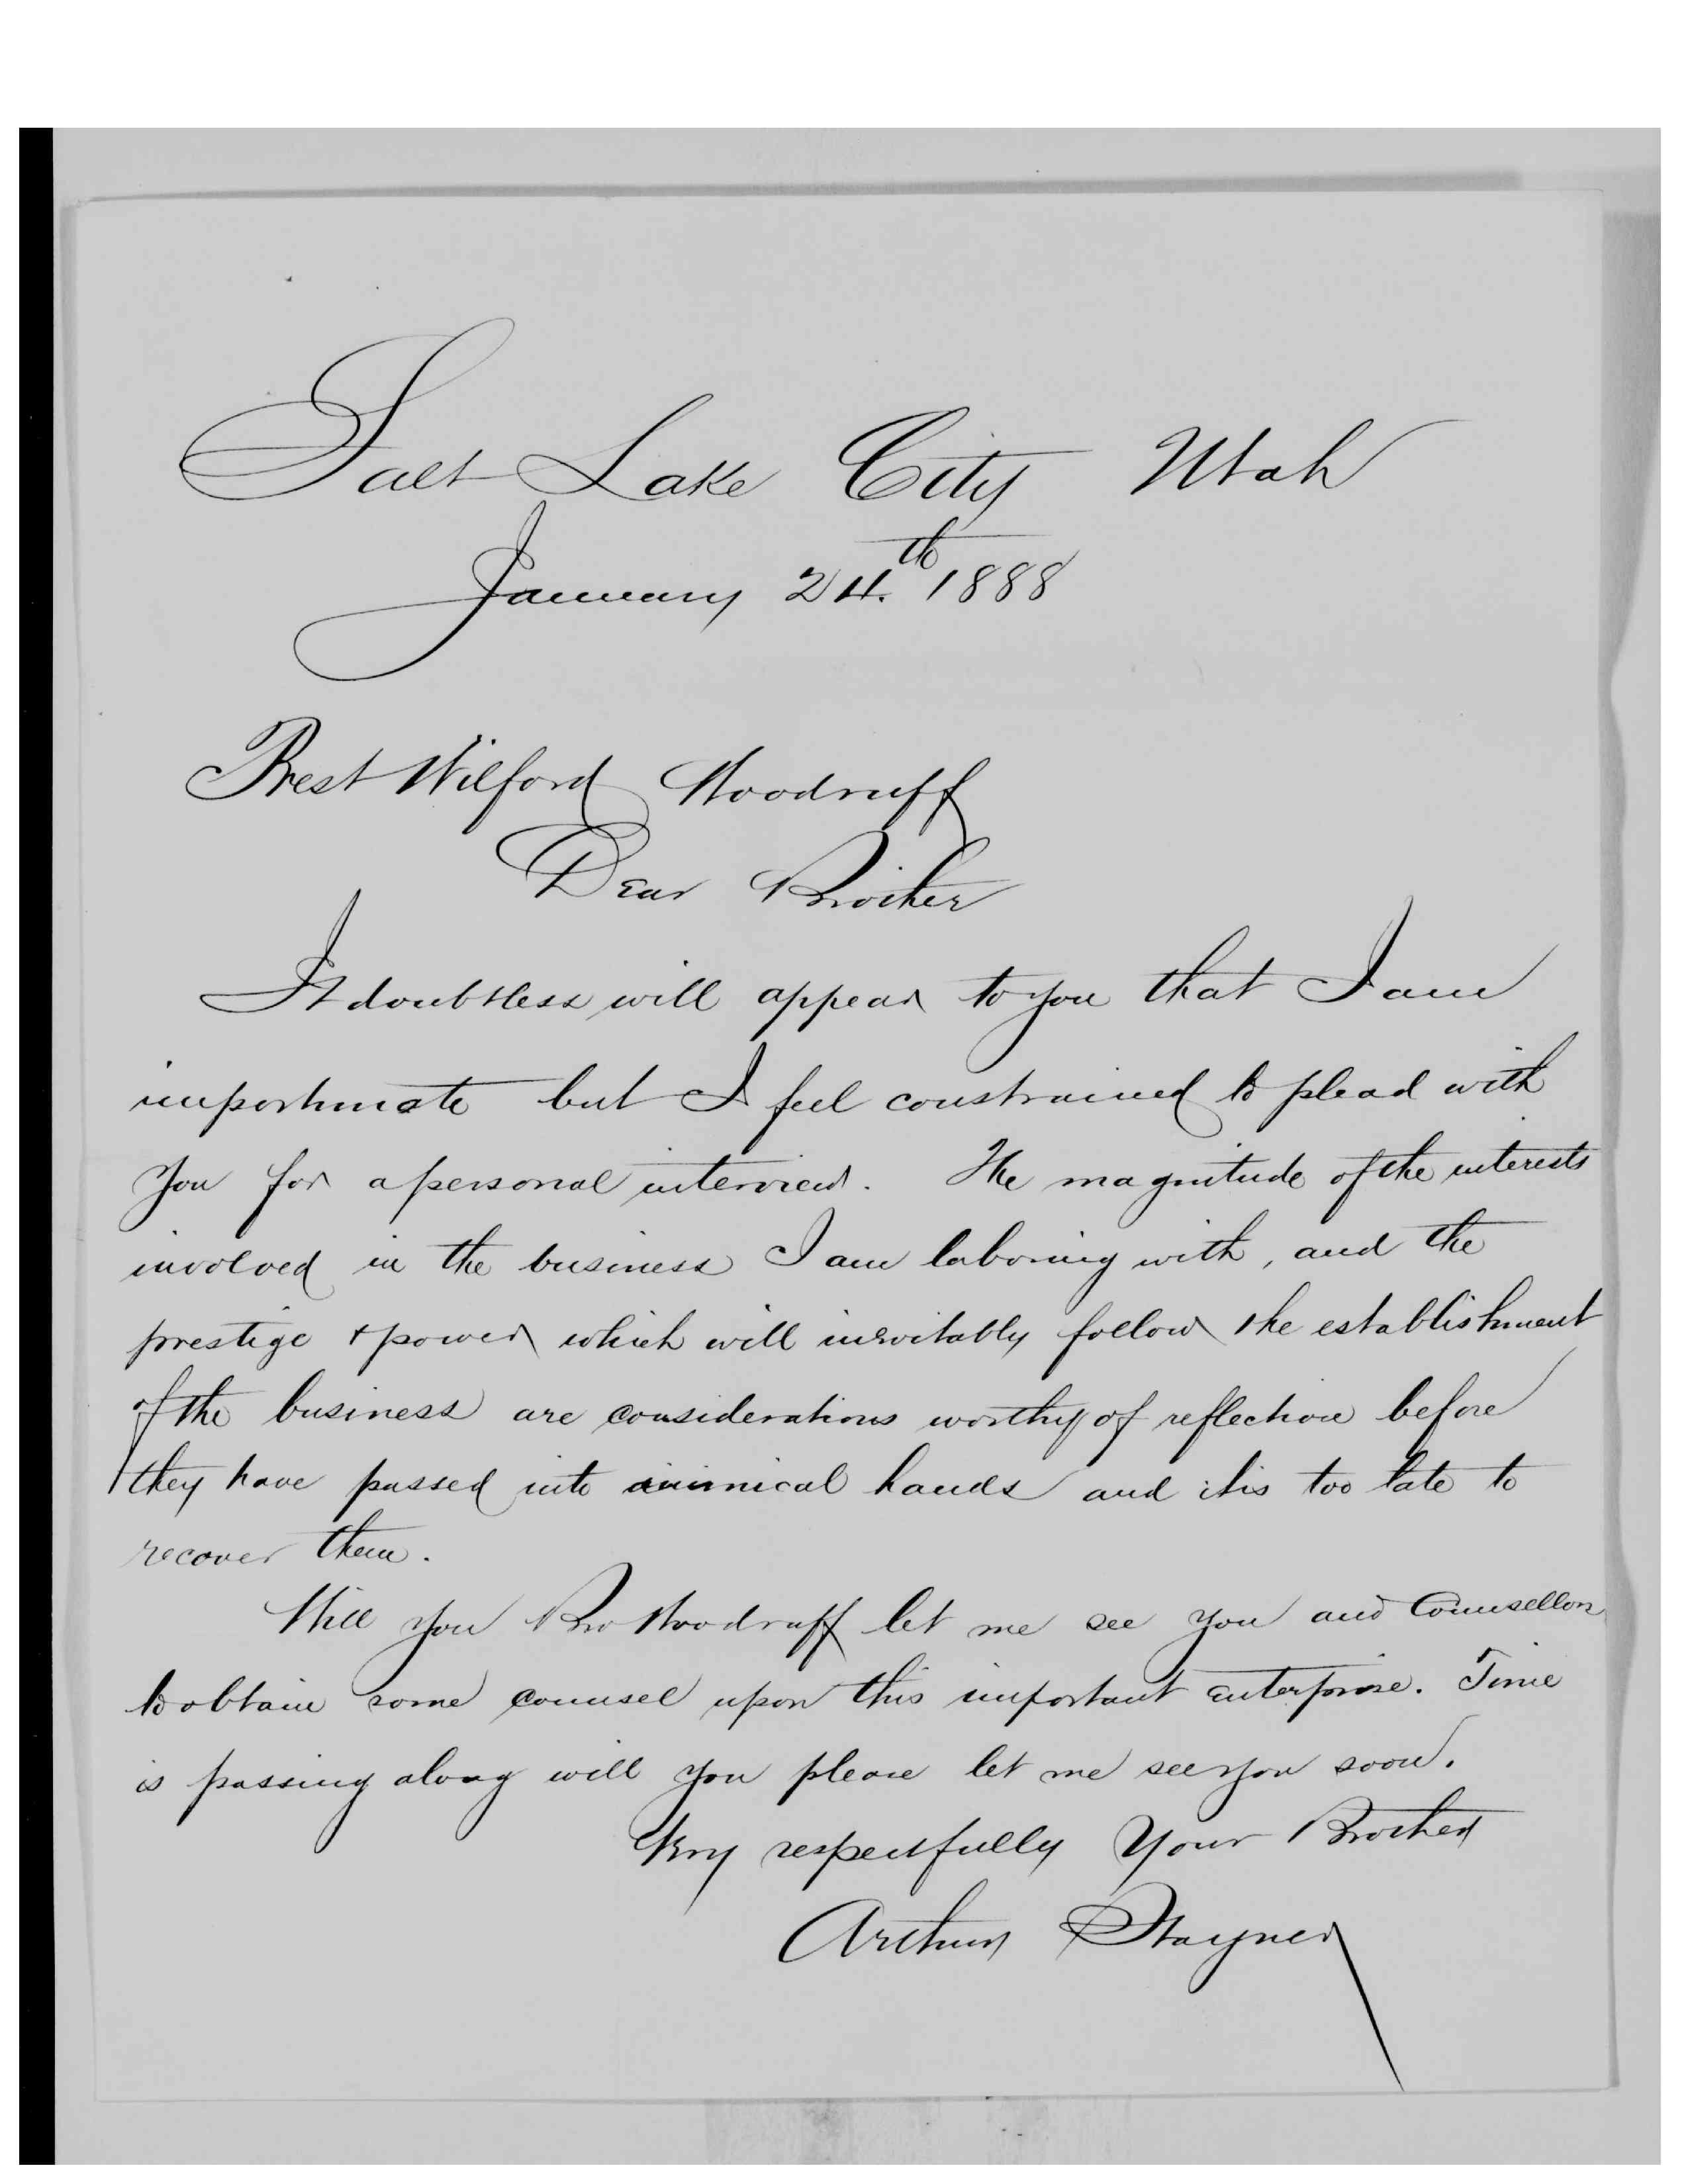 Salt Lake City Utah
January 24.th 1888
Prest Wilford Woodruff
Dear Brother
It doubtless will appear to you that I am
importunate but I feel constrained to plead with
you for a personal interview. The magnitude of the interests
involved in the business I am laboring with, and the
prestige & power which will inevitably follow the establishment
of the business are considerations worthy of reflection before
they have passed into inimical hands and it is too late to
recover them.
Will you Bro Woodruff let me see you and Counsellors
to obtain some counsel upon this important enterprise. Time
is passing along will you please let me see you soon.
Very respectfully Your Brother
Arthur Stayner